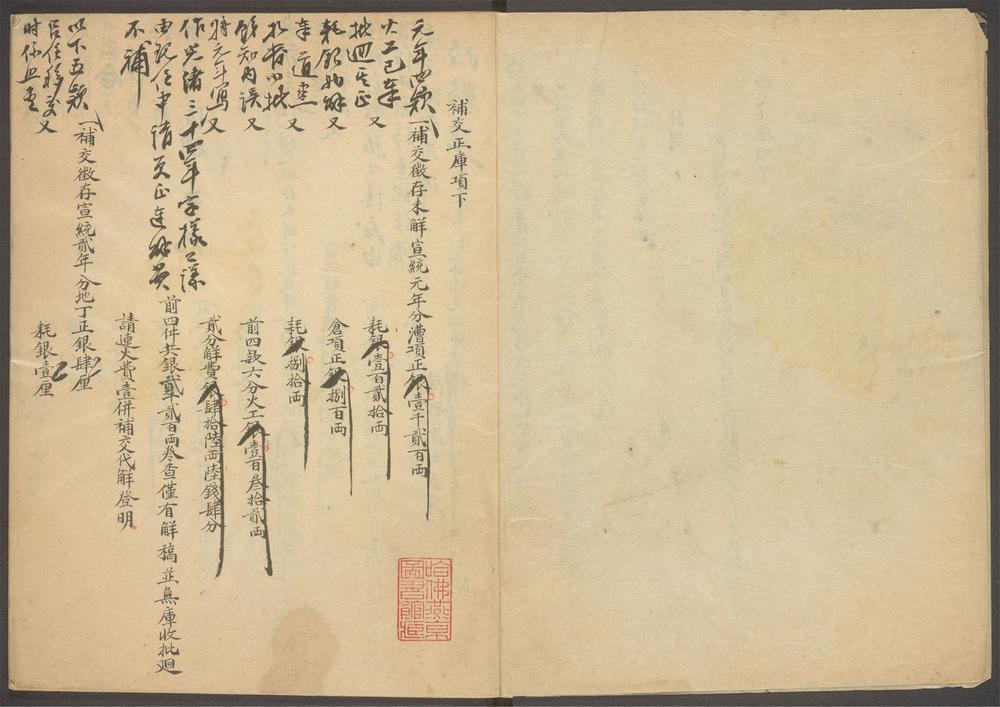 補交正庫項下
一補交徵存未解宣統元年分漕項正銀壹千貳百両
又
耗銀壹百貳拾両
又
倉項正銀捌百両
又
耗銀捌拾両
又
前四款六分火工銀壹百叁拾貳両
又
貳分解費銀肆拾陸両陸錢肆分
前四件共銀貳千貳百両卷查僅有解稿並無庫收批廻
請連火費壹併補交代解登明
一補交徵存宣統貳年分地丁正銀肆厘
又
耗銀壹厘
元年四款
火工已奉
批廻
耗銀
奉道
錢知內誤
將元年寫
作光緒三十四年字樣
由現任申請更正
不補
以下五款
後任移交
時係
哈佛燕京圖書館藏